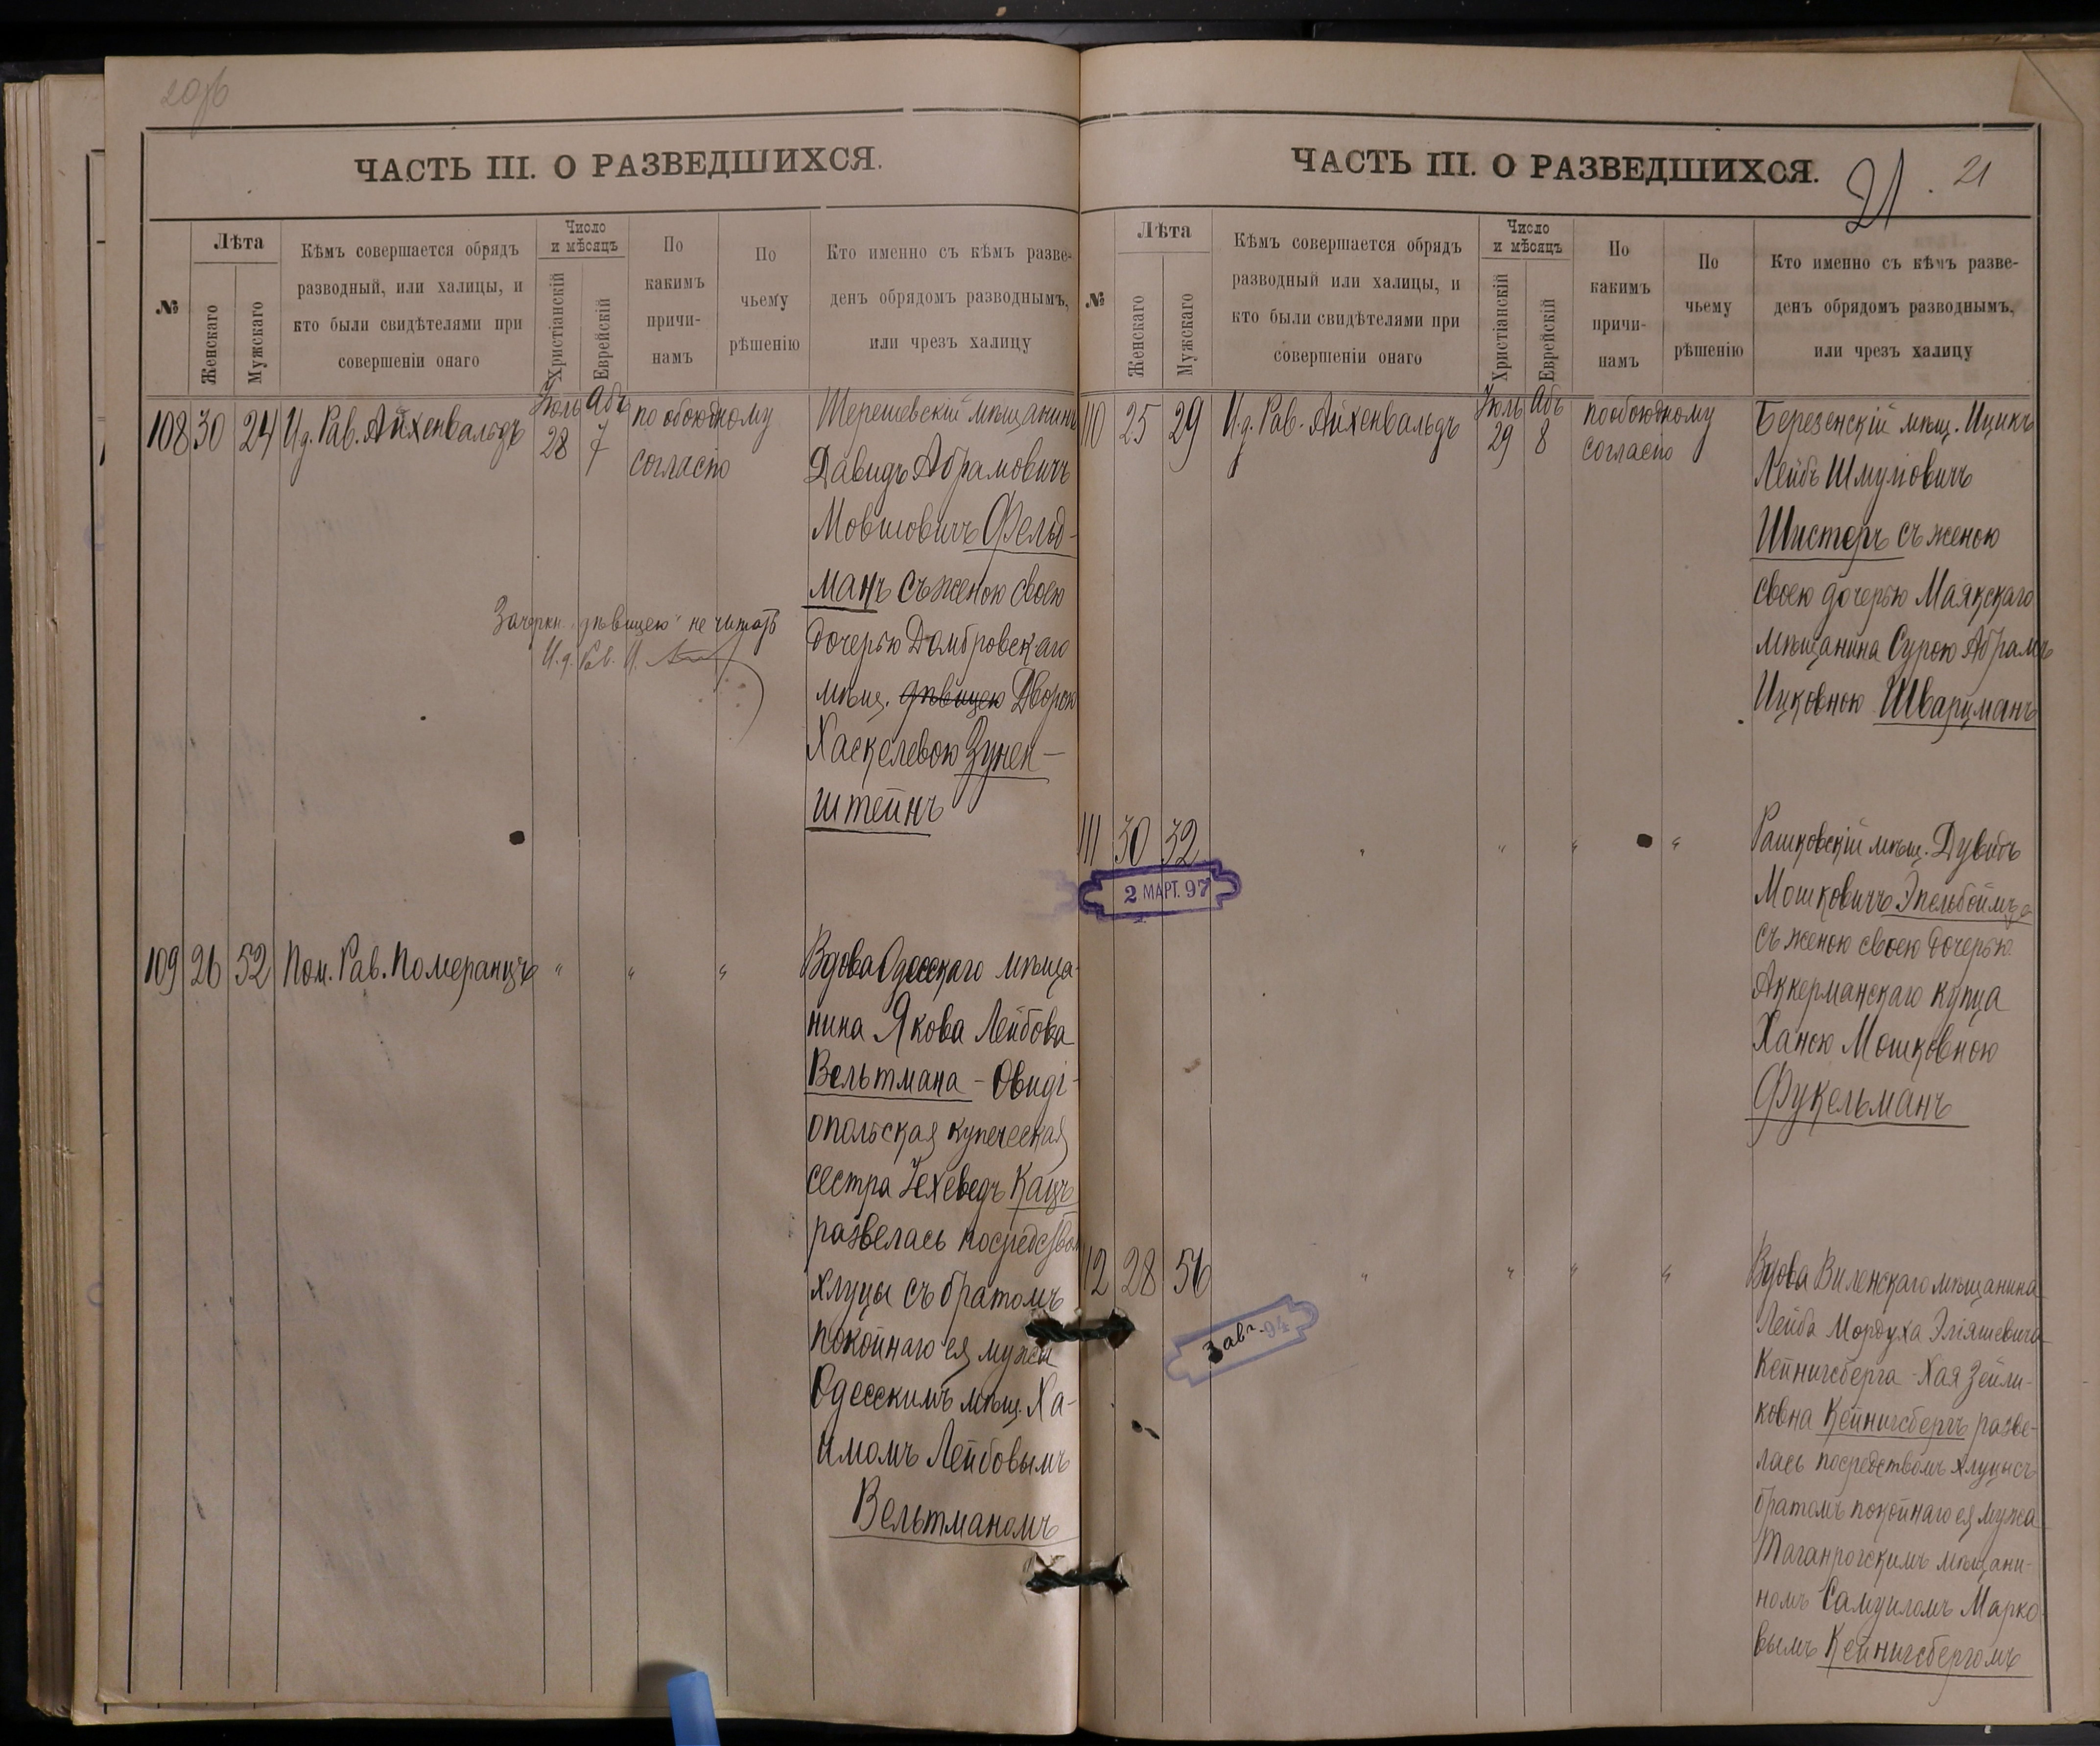 20об
ЧАСТЬ III. О РАЗВЕДШИХСЯ.
№
Лѣта
Женскаго
Мужскаго
Кѣмъ совершается обрядъ
разводный, или халицы, и
кто были свидѣтелями при
совершеніи онаго
Число
и мѣсяцъ
Христіанскій
Еврейскій
По
какимъ
причи-
намъ
По
чьему
рѣшенію
Кто именно съ кѣмъ разве-
денъ обрядомъ разводнымъ,
или чрезъ халицу
108 30 24 И.д. Рав. Айхенвальдъ
Іюль 28
Абъ 7
по обоюдному
согласію
Шерешевскій мѣщанинъ
Давидъ Абрамовичъ
Мовшовичъ Фельд-
манъ съ женою своею
дочерью Домбровскаго
мѣщ. дѣвицею Дворою
Хаскелевою Зунен-
штейнъ
Зачеркн. "дѣвицею" не читать
И.д. Рав.
109 26 52 Пом. Рав. Померанцъ " " "
Вдова Одесскаго мѣща-
нина Якова Лейбова
Вельтмана - Овиді-
опольская купеческая
сестра Іехеведъ Кацъ
развелась посредствомъ
хлуцы съ братомъ
покойнаго ея мужа
Одесскимъ мѣщ. Ха-
имомъ Лейбовымъ
Вельтманомъ
ЧАСТЬ III. О РАЗВЕДШИХСЯ.
21. 21
№
Лѣта
Женскаго
Мужскаго
Кѣмъ совершается обрядъ
разводный или халицы, и
кто были свидѣтелями при
совершеніи онаго
Число
и мѣсяцъ
Христіанскій
Еврейскій
По
какимъ
причи-
намъ
По
чьему
рѣшенію
Кто именно съ кѣмъ разве-
денъ обрядомъ разводнымъ,
или чрезъ халицу
110 25 29 И.д. Рав. Айхенвальдъ
Іюль 29
Абъ 8
по обоюдному
согласію
Березенскій мѣщ. Ицикъ
Лейбъ Шмуліовичъ
Шистеръ съ женою
своею дочерью Маякскаго
мѣщанина Сурою Абрамъ
Ицковною Шварцманъ
111 30 32 " " " "
2 МАРТ. 97
Рашковскій мѣщ. Дувидъ
Мошковичъ Эпельбоймъ
съ женою своею дочерью
Аккерманскаго купца
Ханою Мошковною
Фукельманъ
112 28 56 " " " "
3 авг. 94
Вдова Виленскаго мѣщанина
Лейба Мордуха Эліяшевича
Кейнигсберга - Хая Зейли-
ковна Кейнигсбергъ разве-
лась посредствомъ хлуцы съ
братомъ покойнаго ея мужа
Таганрогскимъ мѣщани-
номъ Самуиломъ Марко-
вымъ Кейнигсбергомъ